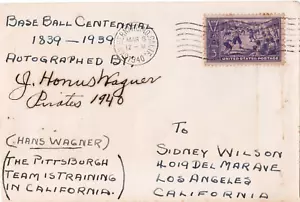 BASE BALL CENTENNIAL
1839-1939
AUTOGRAPHED BY,
J. Honus Wagner
Pirates 1940
(HANS WAGNER)
(THE PITTSBURGH
TEAM IS TRAINING
IN CALIFORNIA.)
MAR
1940
UNITED STATES POSTAGE
TO
SIDNEY WILSON
4019 DEL MAR AVE
LOS ANGELES
CALIFORNIA